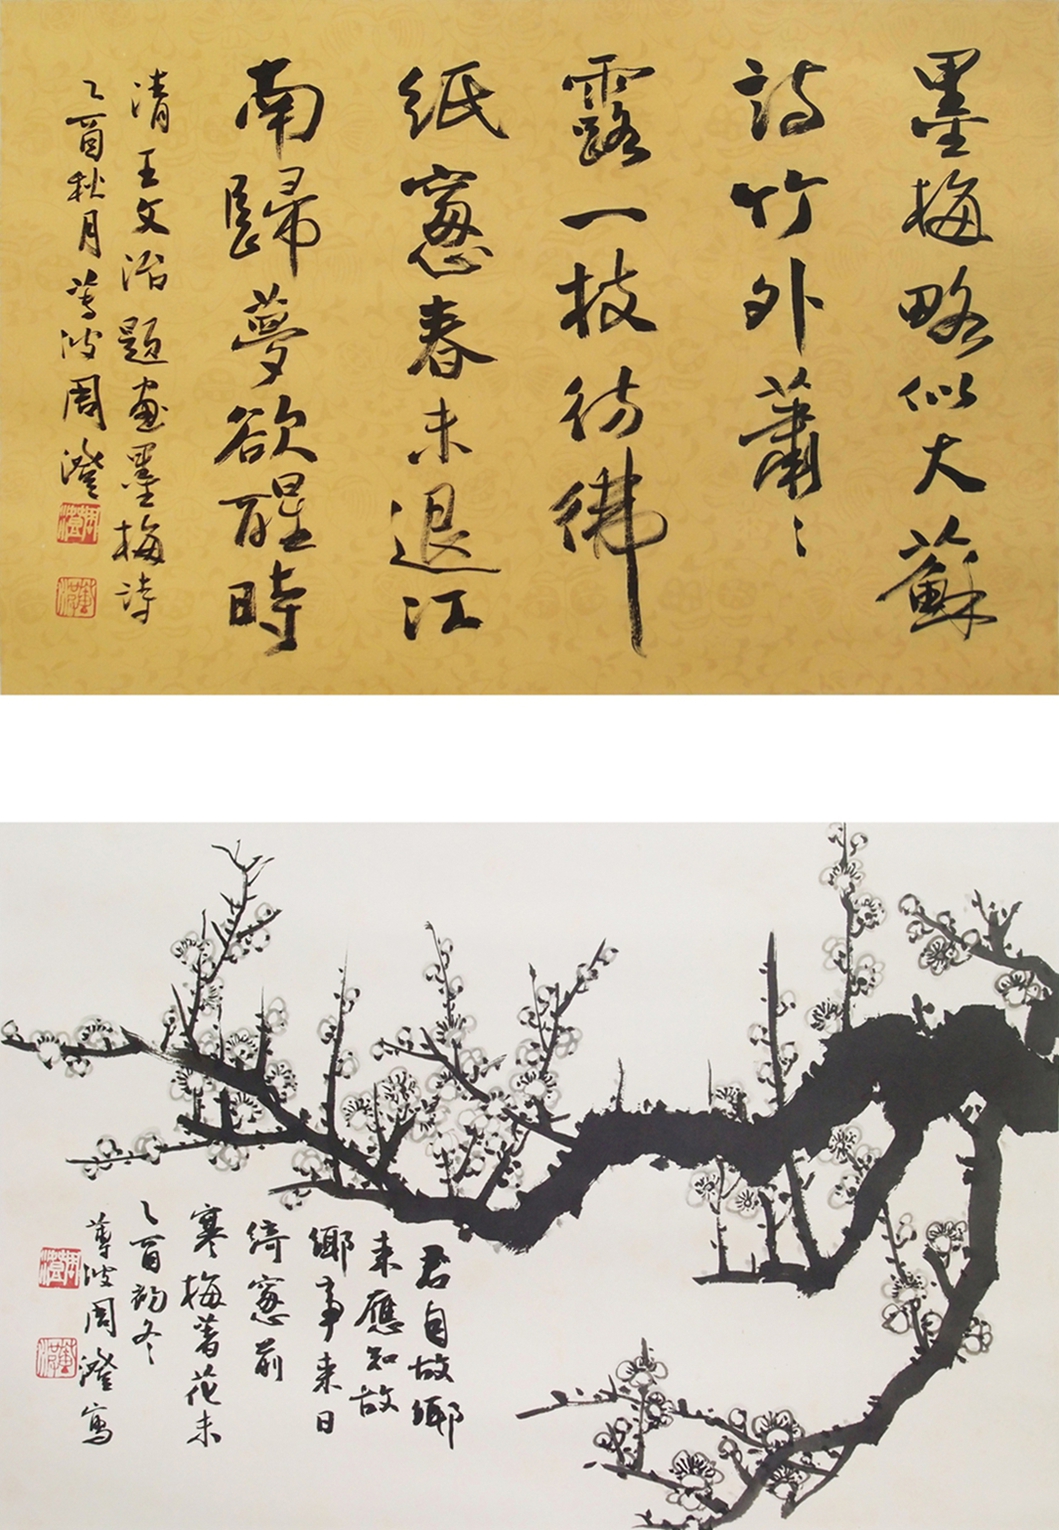 墨梅略似大蘇
詩竹外蕭〻
露一枝彷彿
紙窻春未退江
南歸夢欲醒時
清王文治題畫墨梅詩
乙酉秋月蓴波周澄
周澄
蓴波
君自故鄉
來應知故
鄉事來日
綺窻前
寒梅著花未
乙酉初冬
蓴波周澄寫
周澄
蓴波